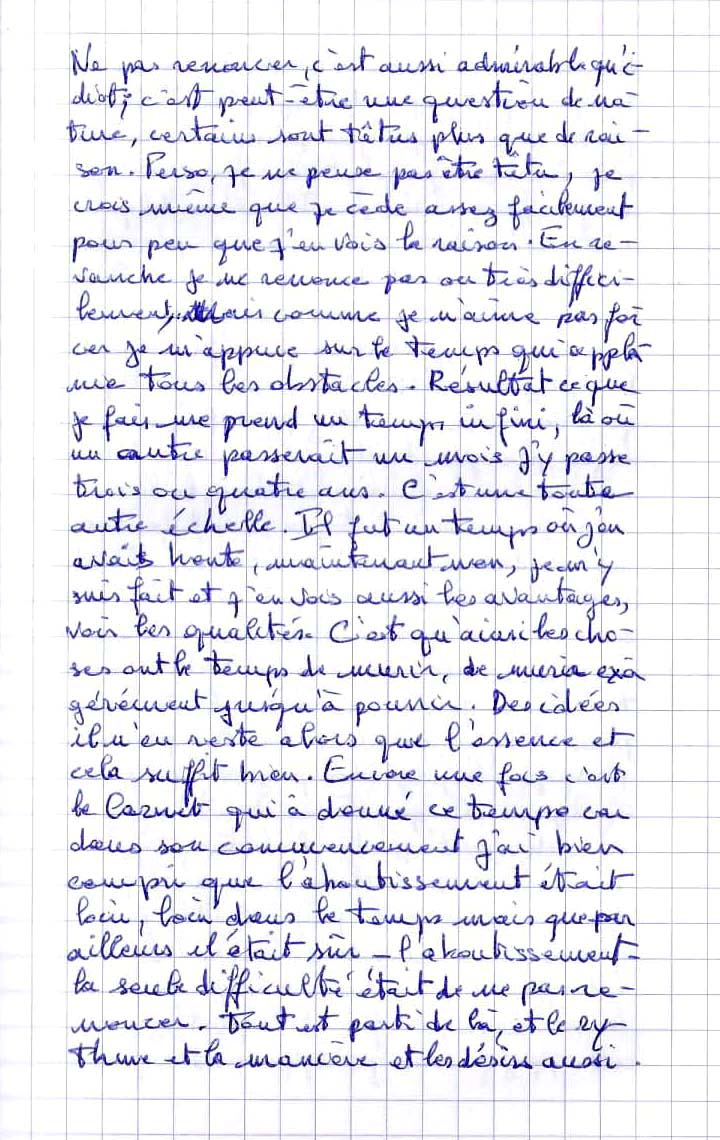 Ne pas renoncer, c'est aussi admirable qu'i-
diot; c'est peut-être une question de na-
ture, certains sont têtus plus que de rai-
son. Perso, je ne pense pas être têtu, je
crois même que je cède assez facilement
pour peu que j'en vois la raison. En re-
vanche je ne renonce pas ou très diffici-
lement, mais comme je n'aime pas for
cer je m'appuie sur le temps qui applà
nie tous les obstacles. Résultat ce que
je fais me prend un temps infini, là où
un autre passerait un mois j'y passe
trois ou quatre ans. C'est une toute
autre échelle. Il fut un temps où j'en
avais honte, maintenant non, je m'y
suis fait et j'en vois aussi les avantages,
voir les qualités. C'est qu'ainsi les cho-
ses ont le temps de murir, de murir exa
gérément jusqu'à pourrir. Des idées
il n'en reste alors que l'essence et
cela suffit bien. Encore une fois c'est
le Carnet qui à donné ce tempo car
dans son commencement j'ai bien
compri que l'aboutissement était
loin, loin dans le temps mais que par
ailleurs il était sûr - l'aboutissement -
la seule difficulté était de ne pas re-
noncer. Tout est parti de là, et le ry-
thme et la manière et les désirs aussi.